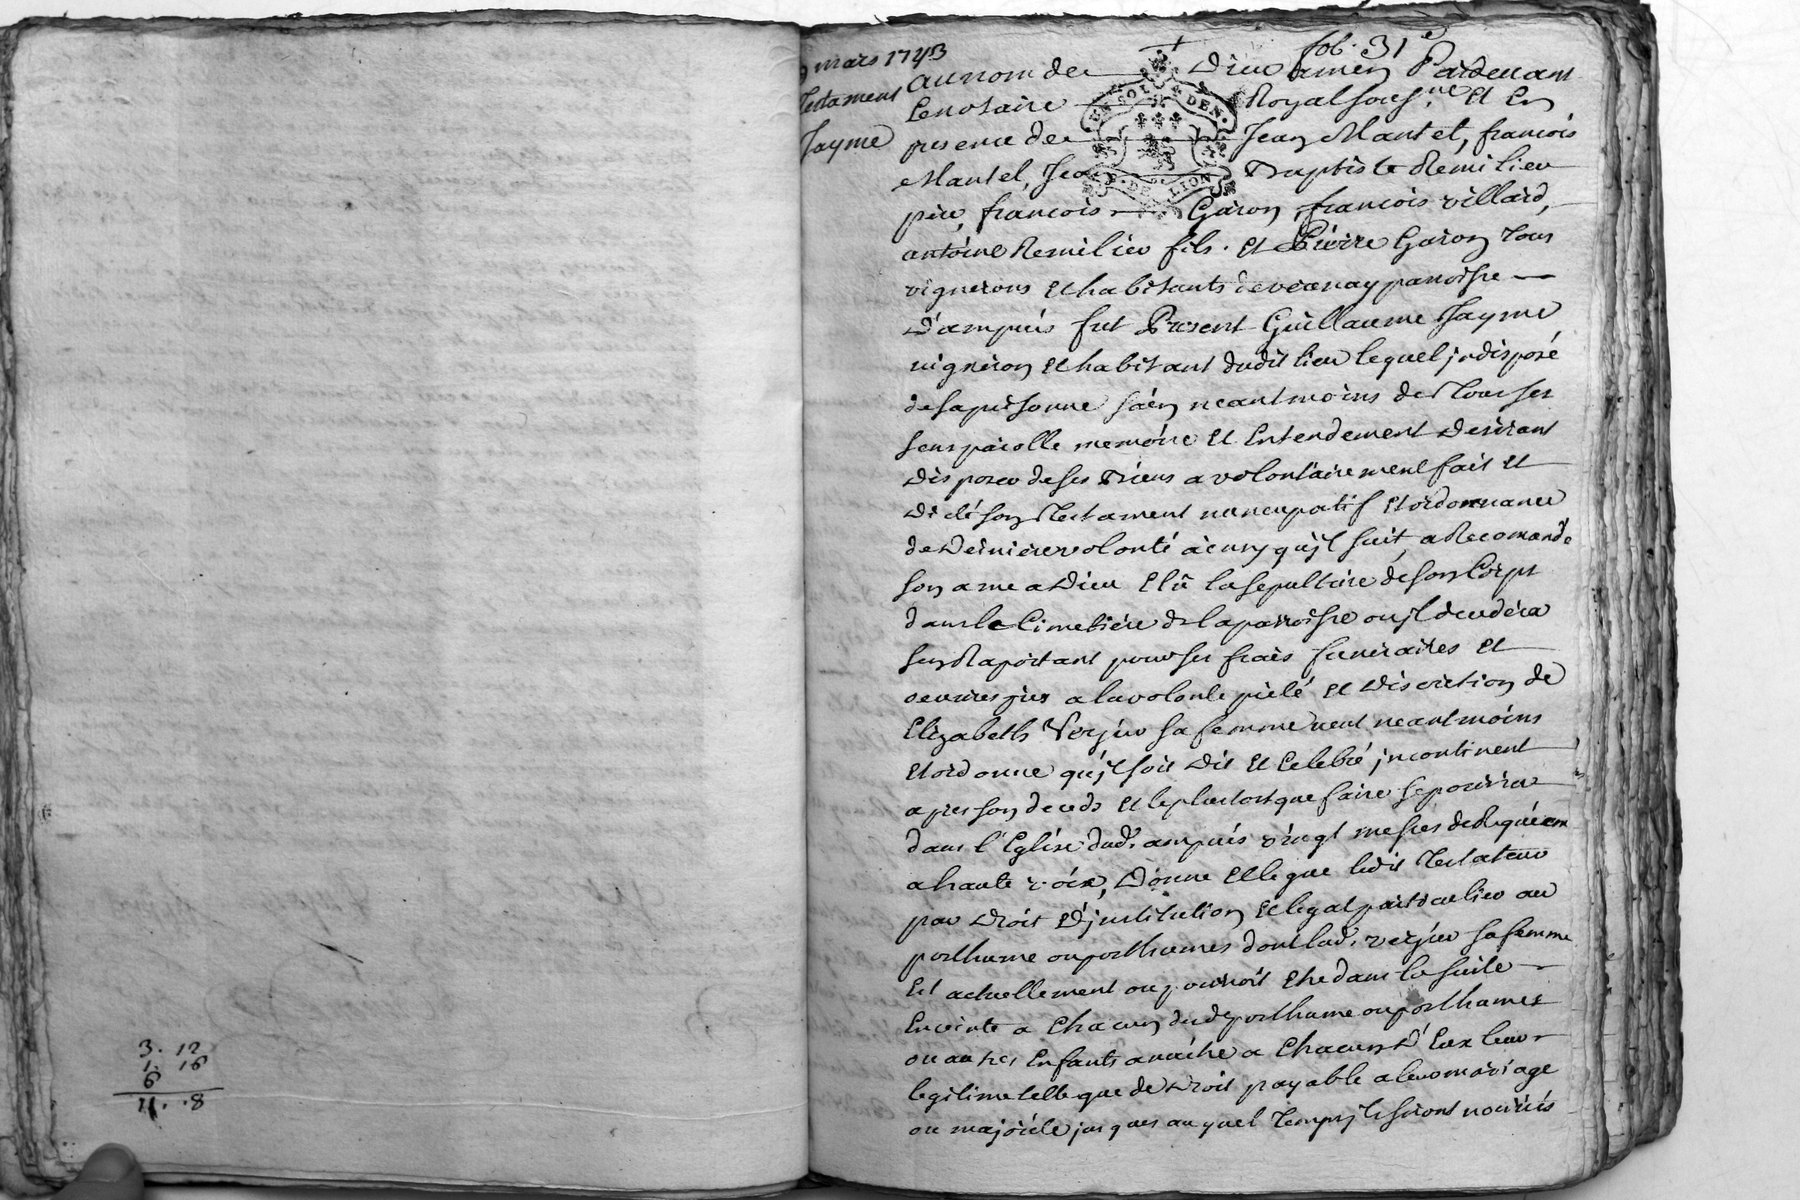 3. 12
1. 16
6
11. .8
9 mars 1743
Testament
Jayme
fol. 31
Au nom de Dieu amen Pardevant
Le notaire Royal sousig.né Et En
presence de Jean Mantel, francois
Mantel, Jean Baptiste Remilieu
pere, francois Garon, francois villard,
antoine Remilieu fils. et Pierre Garon Tous
vignerons et habitants de verenay parroisse
D'ampuis fut Present Guillaume Jayme
vigneron et habitant dudit lieu lequel jndisposé
de sa personne sáin neantmoins de Tous ses
sens parolle memoire Et Entendement Desirant
Disposer de ses Biens a volontairement fait et
Dicté son Testament nuncupatif et ordonnance
de Derniere volonté ainsy qu'jl suit, a Recomandé
son ame a Dieu Elû la sepulture de son Corps
dans le Cimetiére de la parroisse ou jl decedera
sen Raportant pour ses frais funeraires Et
oeuvres pies a la volonté pieté et Discretion de
Elizabeth Verjus sa femme veut neantmoins
et ordonne qu'jl soit Dit et Celebré jncontinent
apres son deceds et le plustost que faire se pourra
dans l'Eglise dud. ampuis vingt messes de Requiem
a haute voix, Donne et legue ledit Testateur
par Droit D'jnstitution et legat particulier au
posthume ou posthumes dont lad. verjus sa femme
Est actuellement ou pourroit être dans la suite
Enceinte a Chacun dud. posthume ou posthumes
ou autres Enfants a naitre a Chacun D'Eux leur
legitime telle que de Droit payable a leur mariage
ou majorité jusques auquel Temps jls seront nourris